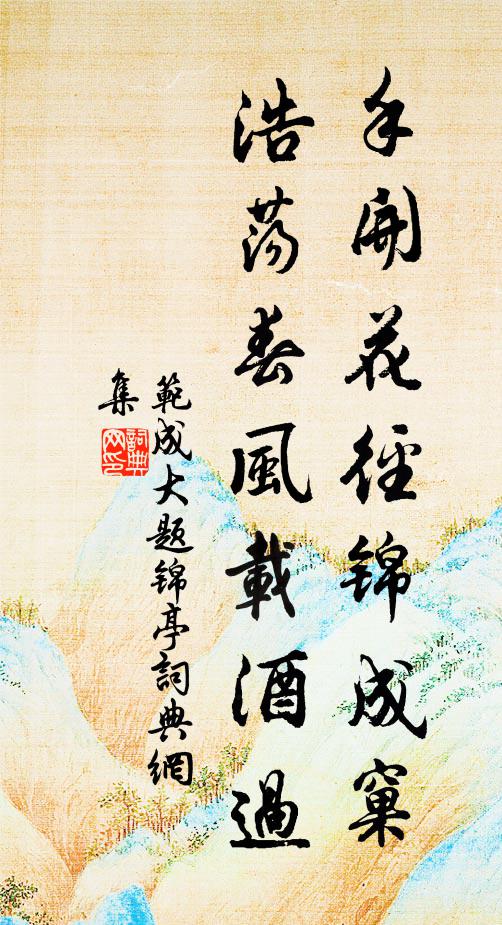 手開花徑錦成窠
浩蕩春風載酒過
範成大題錦亭詞典網
集
詞典
网印